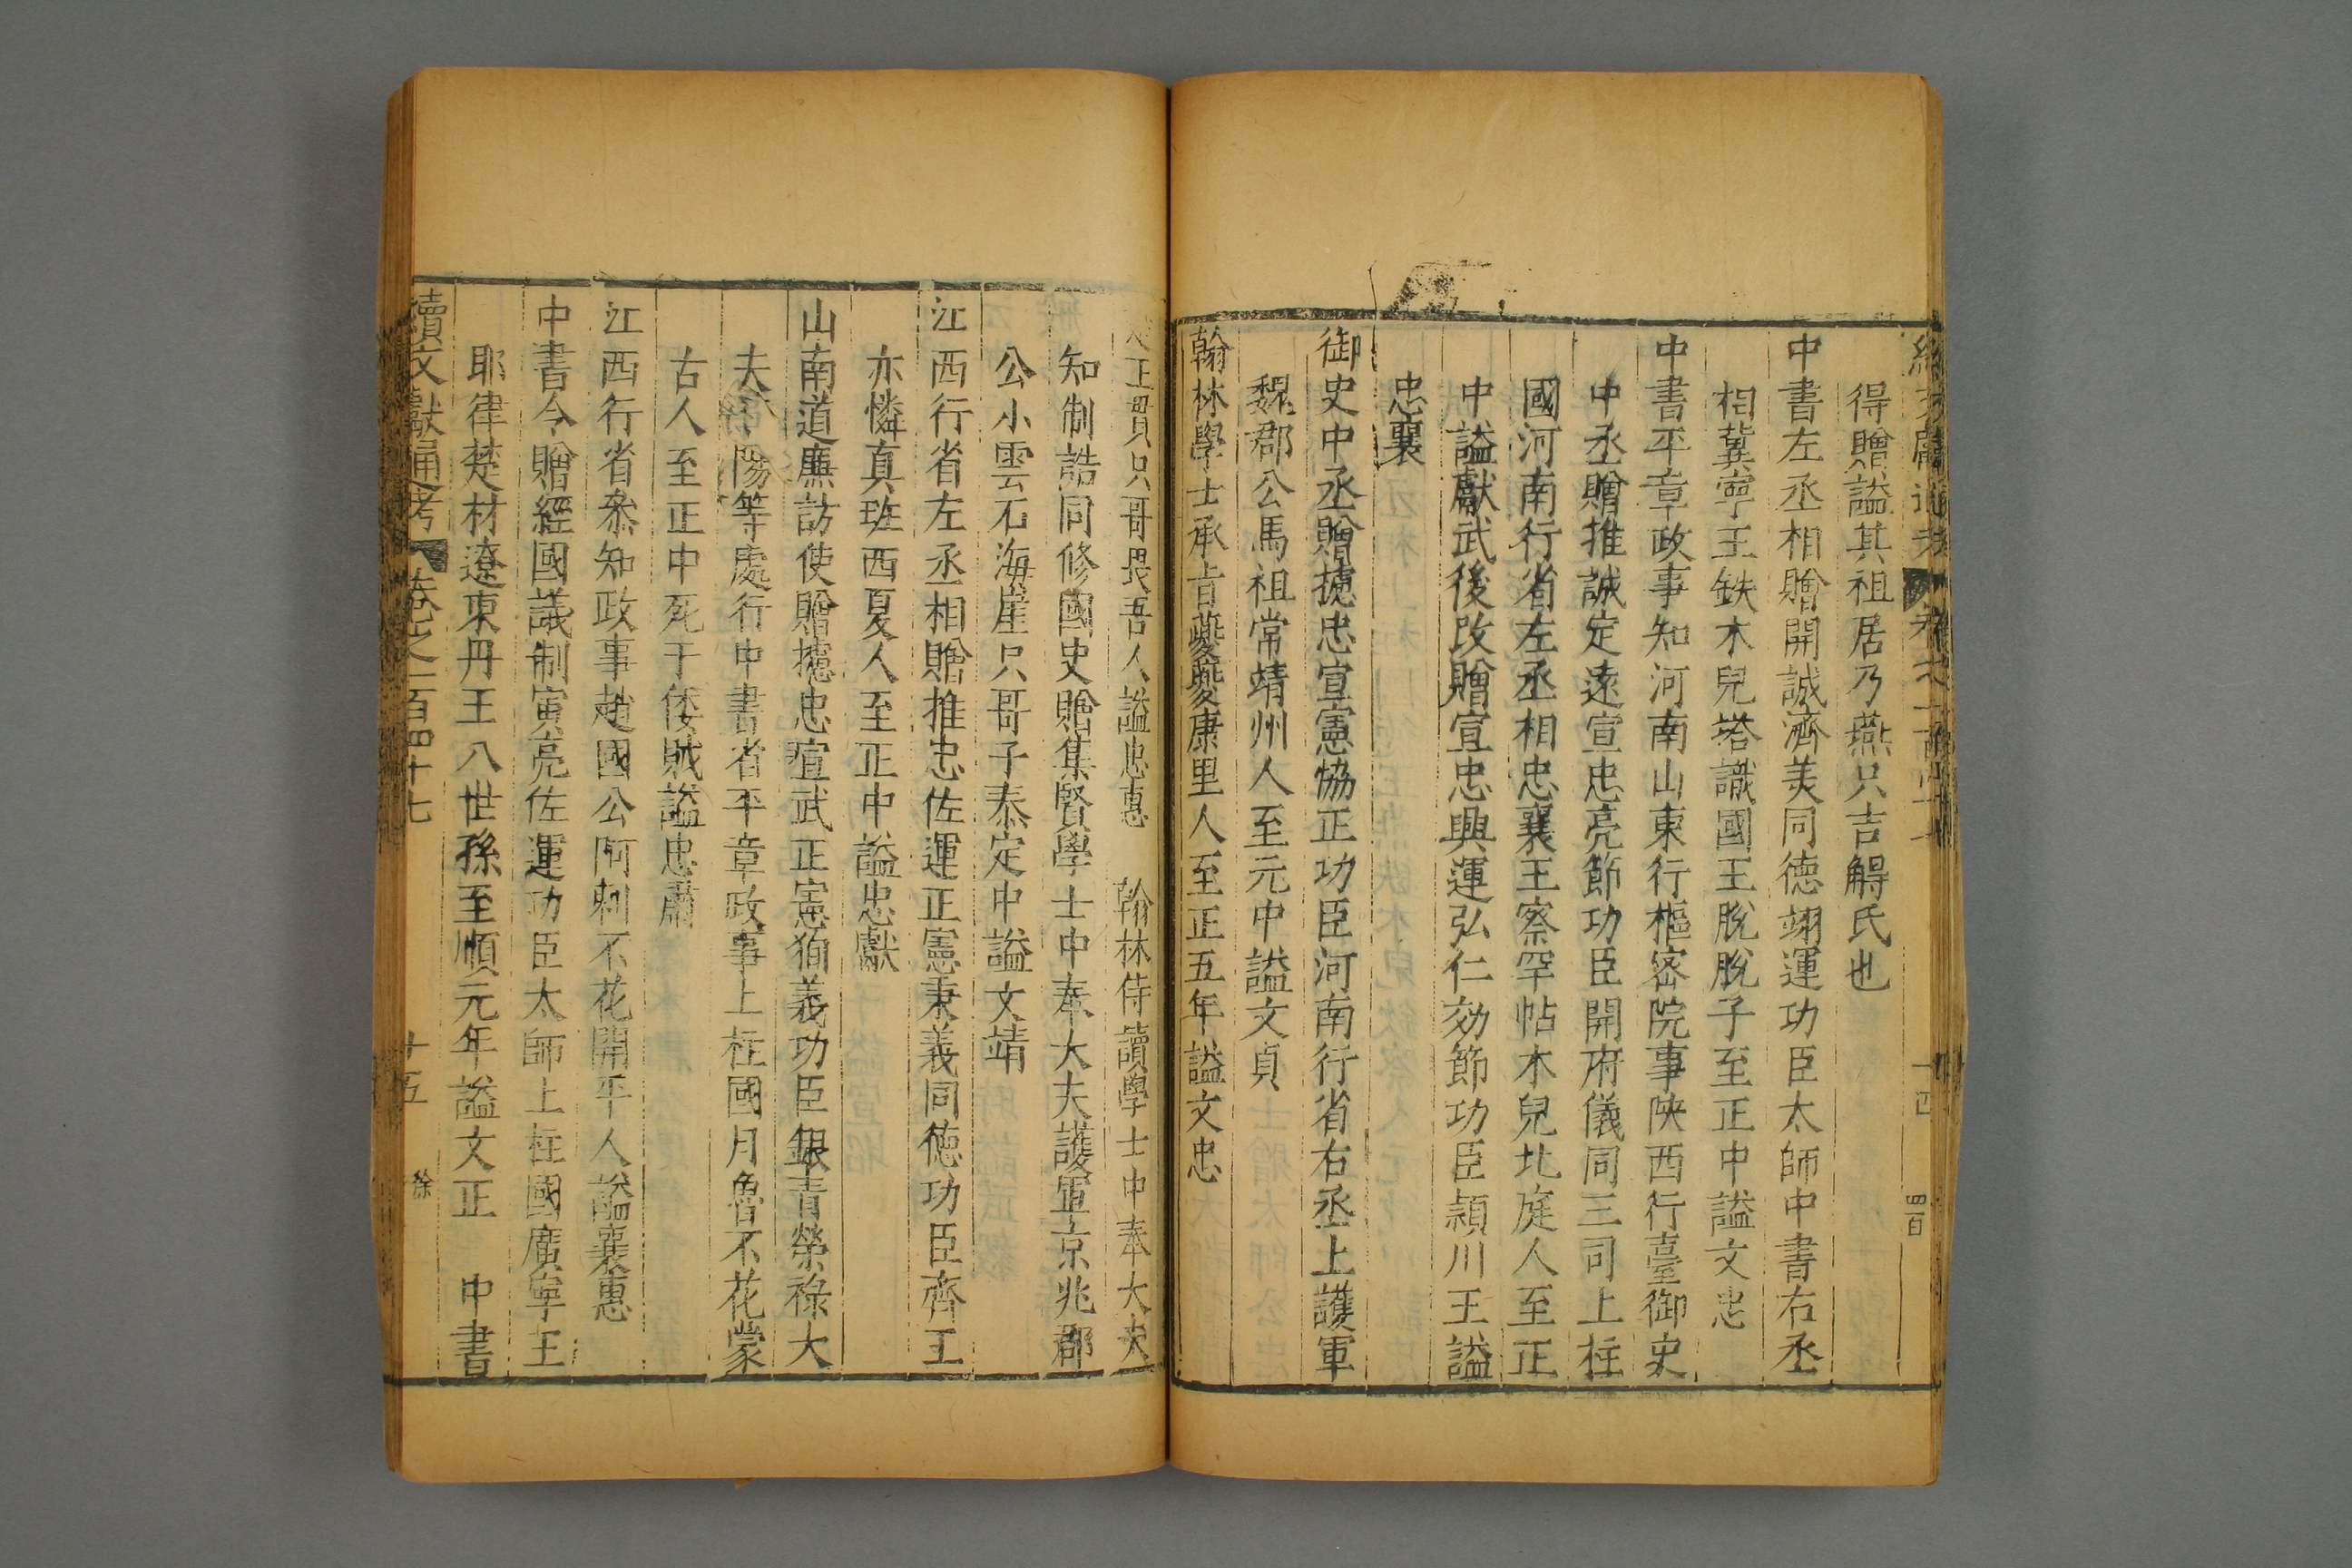 得贈謚其祖居乃燕只吉䚟氏也
中書左丞相贈開誠濟美同德翊運功臣太師中書右丞
相冀寧王鉄木兒塔識國王脫脫子至正中謚文忠
中書平章政事知河南山東行樞密院事陝西行臺御史
中丞贈推誠定遠宣忠亮節功臣開府儀同三司上柱
國河南行省左丞相忠襄王察罕帖木兒北庭人至正
中謚獻武後改贈宣忠興運弘仁効節功臣頴川王謚
忠襄
御史中丞贈攄忠宣憲協正功臣河南行省右丞上護軍
魏郡公馬祖常靖州人至元中謚文貞
翰林學士承㫖巙巙康里人至正五年謚文忠
正貫只哥畏吾人謚忠惠 翰林侍讀學士中奉大夫
知制誥同修國史贈集賢學士中奉大夫護軍京兆郡
公小雲石海崖只哥子泰定中謚文靖
江西行省左丞相贈推忠佐運正憲秉義同德功臣齊王
亦憐真班西夏人至正中謚忠獻
山南道廉訪使贈攄忠宣武正憲狥義功臣銀青榮祿大
夫河陽等處行中書省平章政事上柱國月魯不花蒙
古人至正中死于倭賊謚忠肅
江西行省叅知政事趙國公阿剌不花開平人謚襄惠
中書令贈經國議制寅亮佐運功臣太師上柱國廣寧王
耶律楚材遼東丹王八世孫至順元年謚文正 中書
續文獻通考 卷之一百四十七 十五 徐